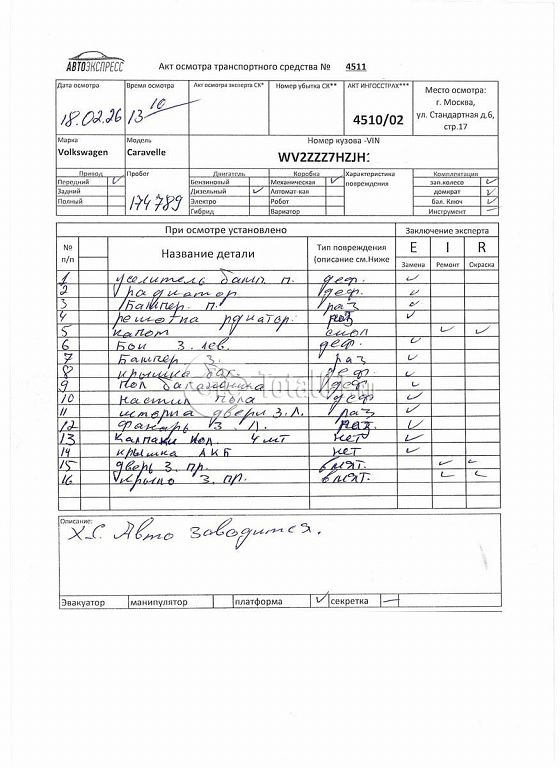 АВТОЭКСПРЕСС
Акт осмотра транспортного средства № 4511
Дата осмотра Время осмотра Акт осмотра эксперта СК* Номер убытка СК** АКТ ИНГОССТРАХ*** Место осмотра:
г. Москва,
18.02.26 13 10 4510/02 ул. Стандартная д.6,
стр.17
Марка Модель Номер кузова -VIN
Volkswagen Caravelle WV2ZZZ7HZJH
Привод Пробег Двигатель Коробка Характеристика Комплектация
Передний Бензиновый Механическая повреждения зап.колесо
Задний Дизельный Автомат-кая домкрат
Полный 174789 Электро Робот бал. Ключ
Гибрид Вариатор Инструмент
При осмотре установлено Заключение эксперта
№ Название детали Тип повреждения E I R
п/п (описание см.Ниже Замена Ремонт Окраска
1 усилитель бамп. п. деф.
2 радиатор деф.
3 Бампер. п. раз
4 решотка рдиатор. раз
5 капот скол
6 Бок З. лев. деф.
7 Бампер З. раз
8 крышка баг. деф.
9 Пол багажника деф
10 настил пола деф
11 шторка двери З.Л. раз
12 Фанарь З Л. раз.
13 Калпаки кол. 4 шт нет
14 крышка АКБ нет
15 дверь З. пр. вмят.
16 Крыло З. пр. вмят.
Total
Описание:
Х.С. Авто заводится.
Эвакуатор манипулятор платформа секретка